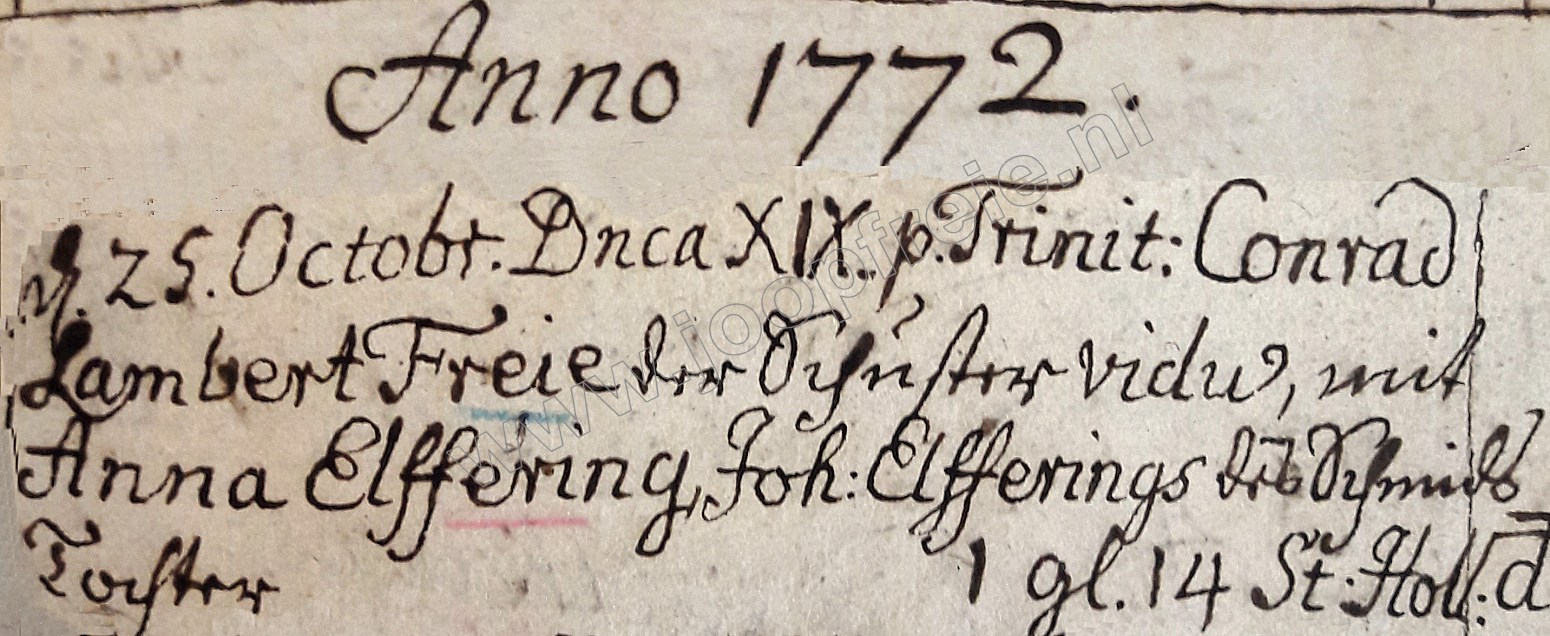 Anno 1772.
d. 25. Octobr. Dnca XIX. p. Trinit: Conrad
Lambert Freie der Schuster vidu9, mit
Anna Elffering, Joh: Elfferings des Schmids
Tochter 1 gl. 14 St: Holl: d
www.joopfreie.nl